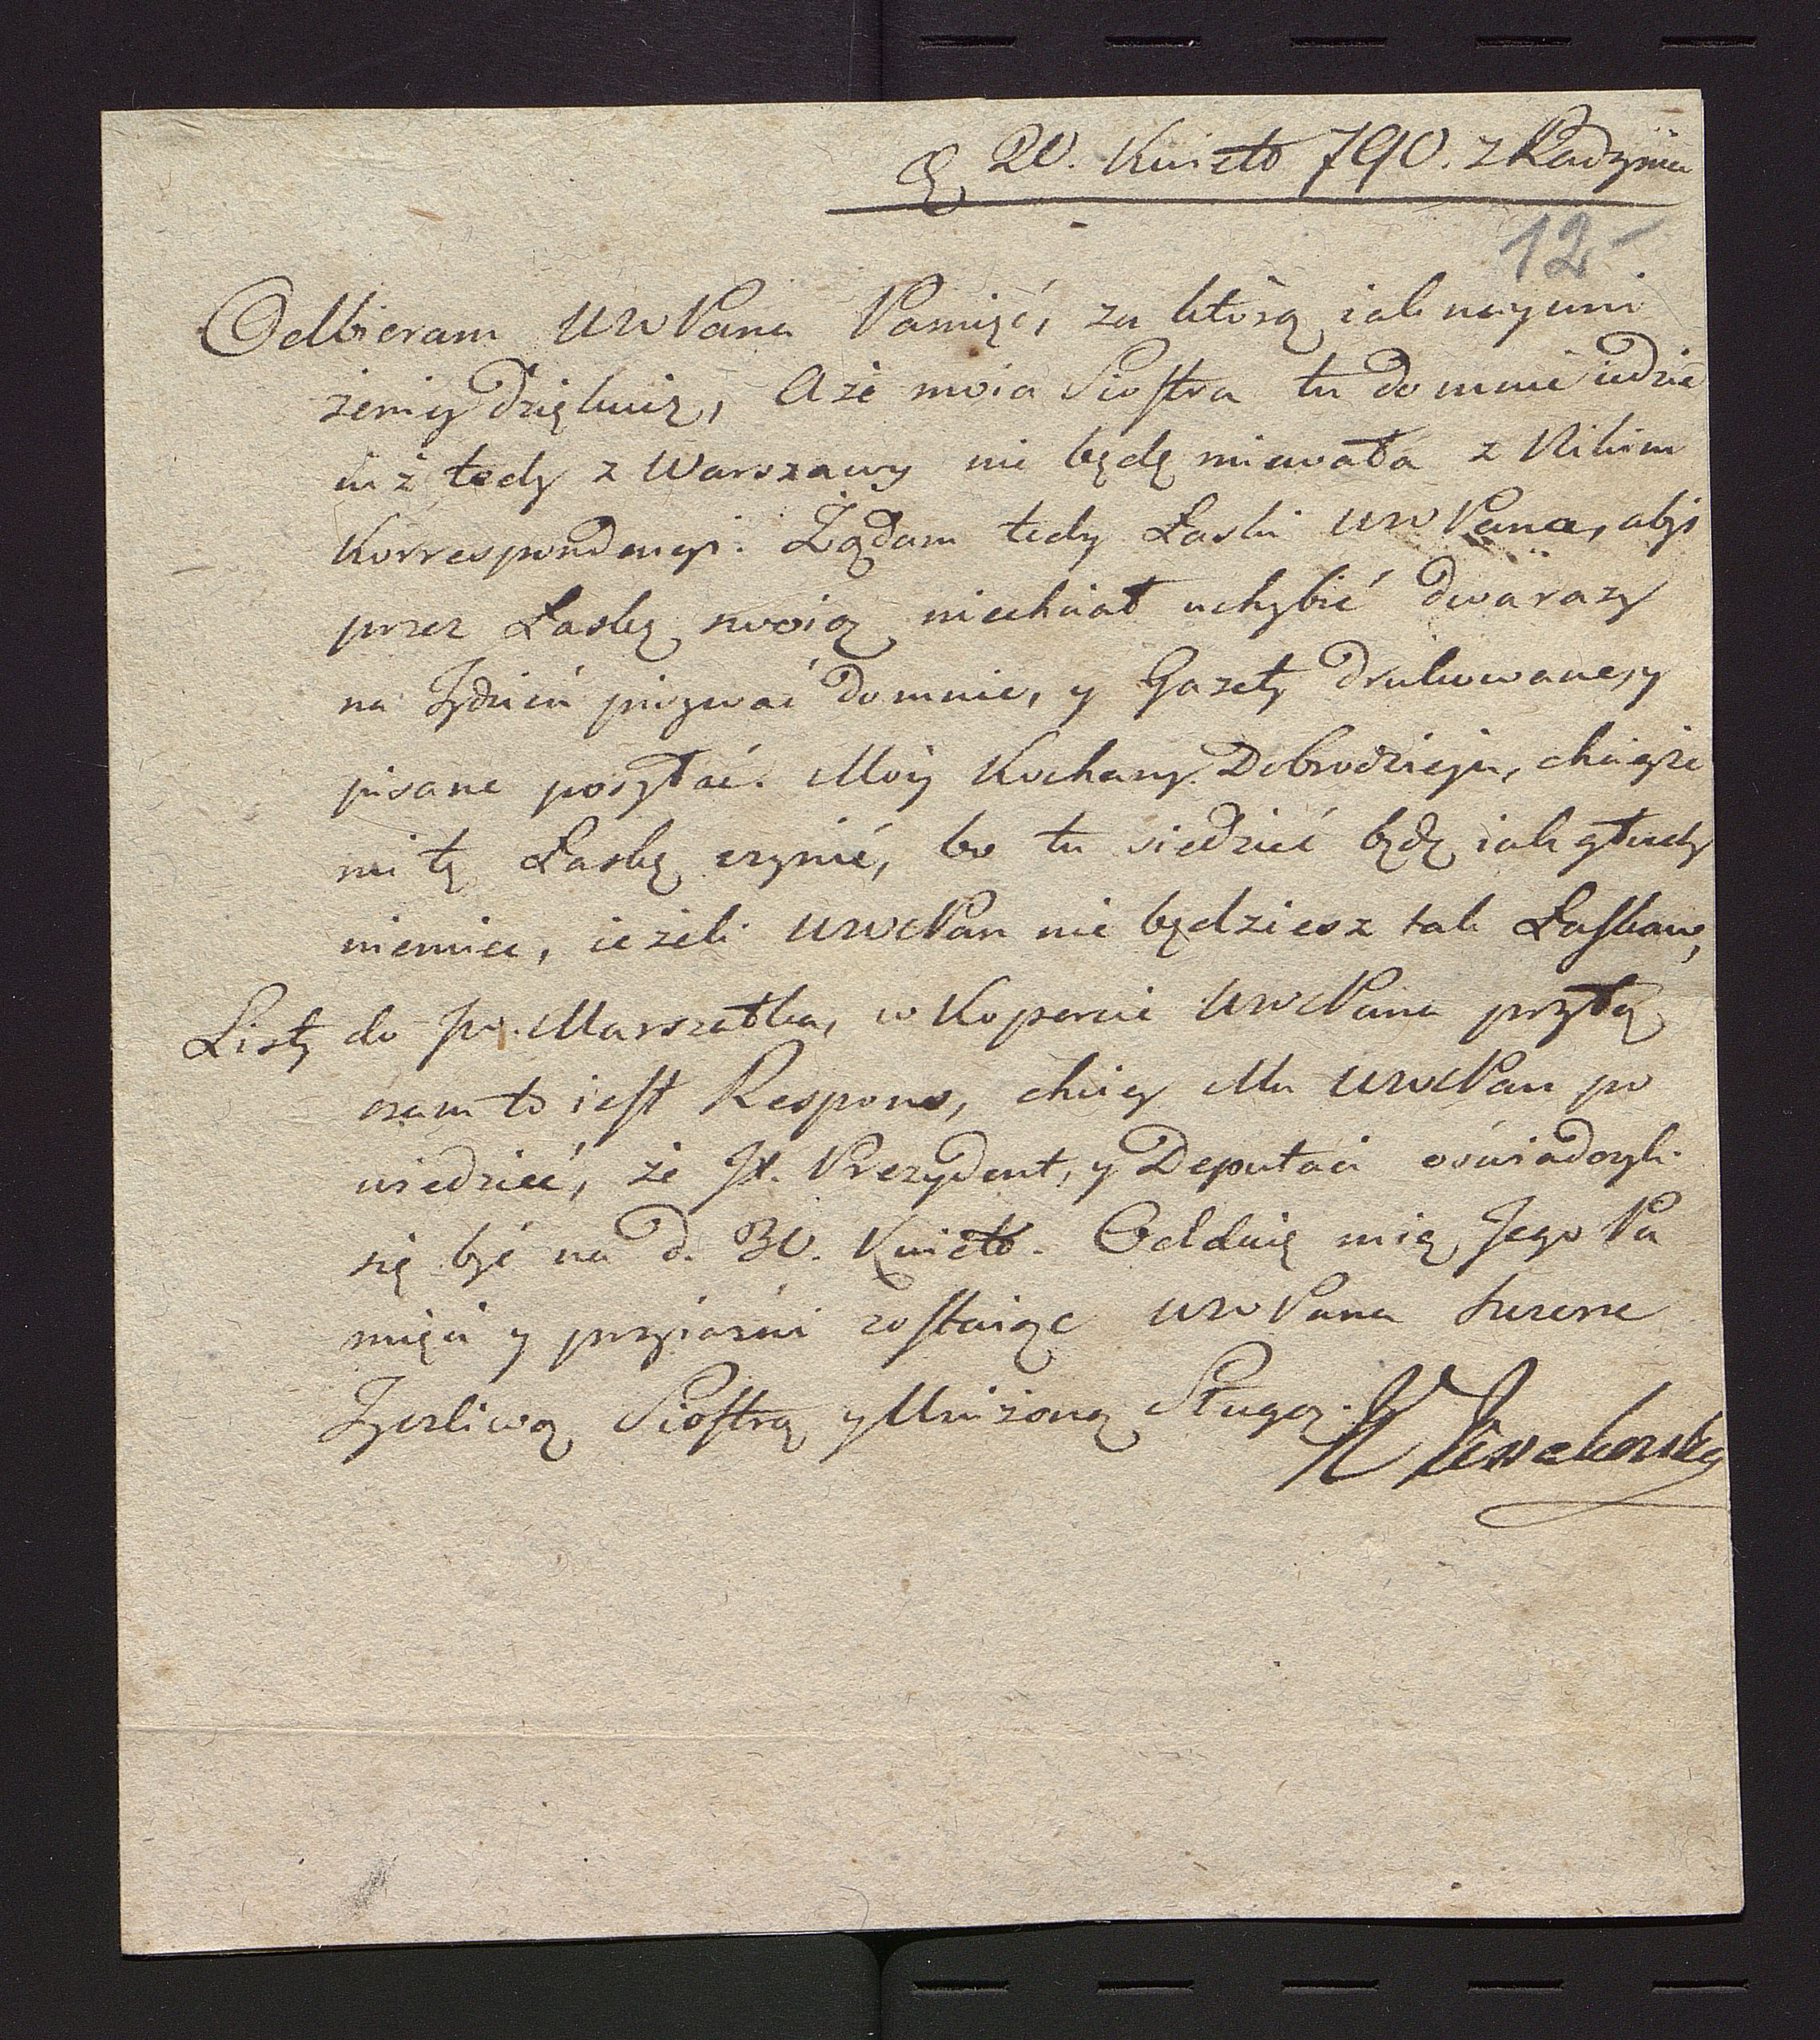 D 20. Kwiet 790. z Radzynia
12
Odbieram UWPana Pamięć, za którą iak nayuni
żeniey dziękuię, Aże moia Siostra tu do mnie iedzie
iuż tedy z Warszawy nie będę miewała z Nikim
Korrespondencyi. Żądam tedy Łaski UWPana, abyś
przez Łaskę swoią niechciał uchybić dwa razy
na Tydzień pisywać do mnie, y Gazety drukowane, y
pisane posyłać. Moy Kochany Dobrodzieju, chcieyże
mi tę Łaskę czynić, bo tu siedzieć będę iak głuchy
niemiec, ieżeli UWPan nie będziesz tak Łaskaw,
Listy do JP. Marszałka, w Kopercie UWPana przyłą
czam to iest Respons, chciey Mu UWPan po
wiedzieć, że JP. Prezydent, y Deputaci oświadczyli
się być na d. 30. Kwiet. Oddaię mię Jego Pa
mięci y przyiaźni zostaiąc UWPana szczerze
Życzliwą Siostrą y Uniżoną Sługą.